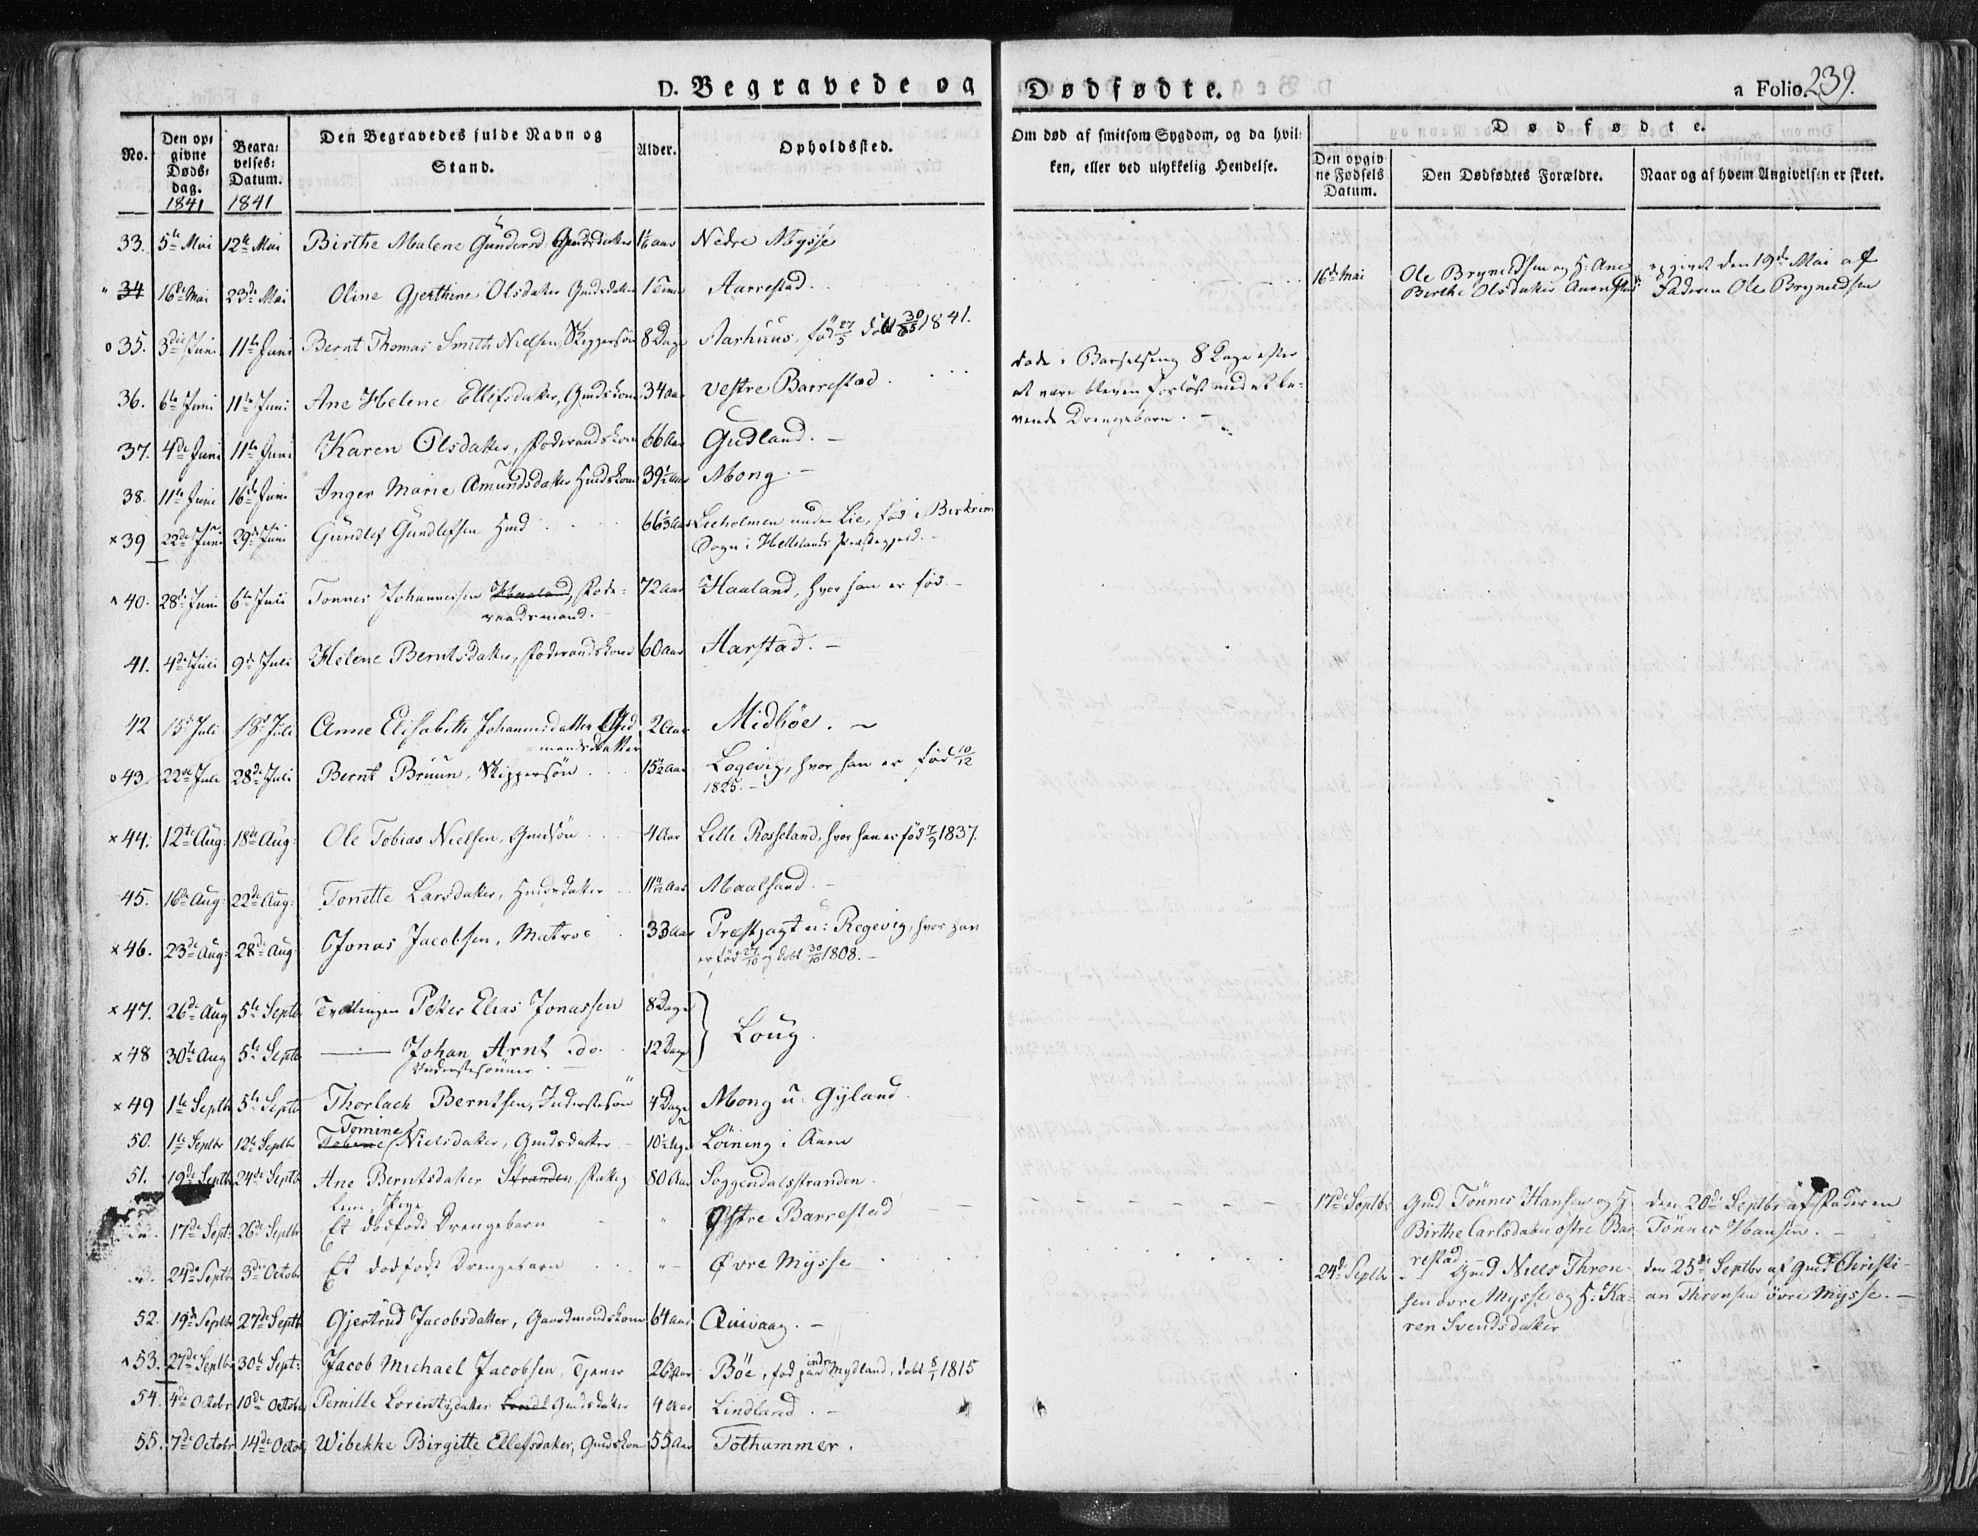 D. Begravede og Dødfødte.
a Folio 239.
No.
Den opgivne Dødsdag. 1841
Begravelses Datum. 1841
Den Begravedes fulde Navn og Stand.
Alder.
Opholdssted.
Om død af smitsom Sygdom, og da hvilken, eller ved ulykkelig Hendelse.
Dødfødte.
Den opgivne Fødsels Datum.
Den Dødfødtes Forældre.
Naar og af hvem Angivelsen er skeet.
33. 5te Mai 12te Mai Birthe Malene Gundersd: Nedre Mysse
34 16de Mai 23de Mai Oline Gjerthine Olsdatter Gmdsdatter 1 Time Aarrestad. 16de Mai Ole Bryneldsen og H: Ane opgivet den 19de Mai af
Berthe Olsdatter Faderen Ole Bryneldsen
35. 3die Juni 11te Juni Bernt Thomas Smith Nielsen, Skippersøn 8 Dage Aarhuus, 1841.
36. 6te Juni 11te Juni Ane Helene Ellefsdatter, Gmdskone 34 aar vestre Barrestad.
døde i Barselseng 8 Dage efter
at være bleven forløst med et le-
vende Drengebarn. -
37. 4de Juni 11te Juni Karen Olsdatter, Føderaadskone 66 Aar Gudland. -
38. 11te Juni 16de Juni Inger Marie Amundsdatter Hmdskone 39½ aar Mong. -
x 39 22de Juni 29de Juni Gundlef Gundlefsen Hmd 66 1/3 Aar Lieholmen under Lie, fød i Birkrim
Sogn i Hellelands Præstegjeld. -
40. 28de Juni 6te Juli Tonnes Johannessen Haaland, Føde- 72 aar Haaland, hvor han er fød -
raadsmand. -
41. 4de Juli 9de Juli Helene Berntsdatter, Føderaadskone 60 aar Aarstad. -
42 15de Juli 18de Juli Anne Elisabeth Johannesdatter 2 aar Midbøe. -
mandsdatter
o 43. 22de Juli 28de Juli Bernt Bruun, Skippersøn 15½ aar Logevig, hvor han er fød 10/12
1825. -
x 44. 12te Aug: 18de Aug: Ole Tobias Nielsen, Gmdsøn 4 Aar Lille Rosseland, hvor han er fød 7/9 1837.
45. 16de Aug: 22de Aug: Tonette Larsdatter, Hmdsdatter 11/12 Aar Maalsand. -
x 46. 23de Aug: 28de Aug: Jonas Jacobsen, Matros 33 Aar Præstjagt u: Regevig, hvor han
er fød 27/10 og døbt 30/10 1808. -
x 47. 26de Aug 5te Septb Tvillingen Peter Elias Jonassen 8 Dage Loug.
x 48 30te Aug 5te Septb Johan Arnt do. 12 Dage
Inderstesønner
x 49 1te Septb 5te Septb Thorlach Berntsen, Inderstesøn 4 Dage Mong u: Gyland.
Tomine
50. 1te Septbr 12te Septbr Nielsdatter, Gmdsdatter 10½ Løining i Aaen
51. 19de Septb 24de Septb Ane Berntsdatter Stranden, Fattig- 80 Aar Soggendalsstranden.
lem, Pige
17de Sept: 26de Septbr Et dødfødt Drengebarn " Østre Barrestad
17de Septbr Gmd Tönnes Hansen og H: den 20de Septbr af Faderen
Birthe Carlsdatter østre Bar- Tönnes Hansen. -
restad
24de Septbr 3de Octobr Et dødfødt Drengebarn " Øvre Mysse
24de Septbr Gmd Niels Thron- den 25de Septbr af gmd Christi-
sen øvre Mysse og H: Ka- an Thronsen övre Mysse. -
ren Svendsdatter
52. 19de Septbr 27de Septb Gjertrud Jacobsdatter, Gaardmandskone 64 aar Quivaag. -
53. 27de Septbr 30te Sept: Jacob Michael Jacobsen, Tjener 26 Aar Bøe, fød paa indre Mydland, døbt 8/1 1815
54. 4de Octobr 10de Octobr Pernille Lorentzdatter Gmdsdatter 4 Aar Lindland. -
55. 7de Octobr 14de Octob Wibekke Birgitte Ellefsdatter, Gmdskone 55 Aar Tothammer.